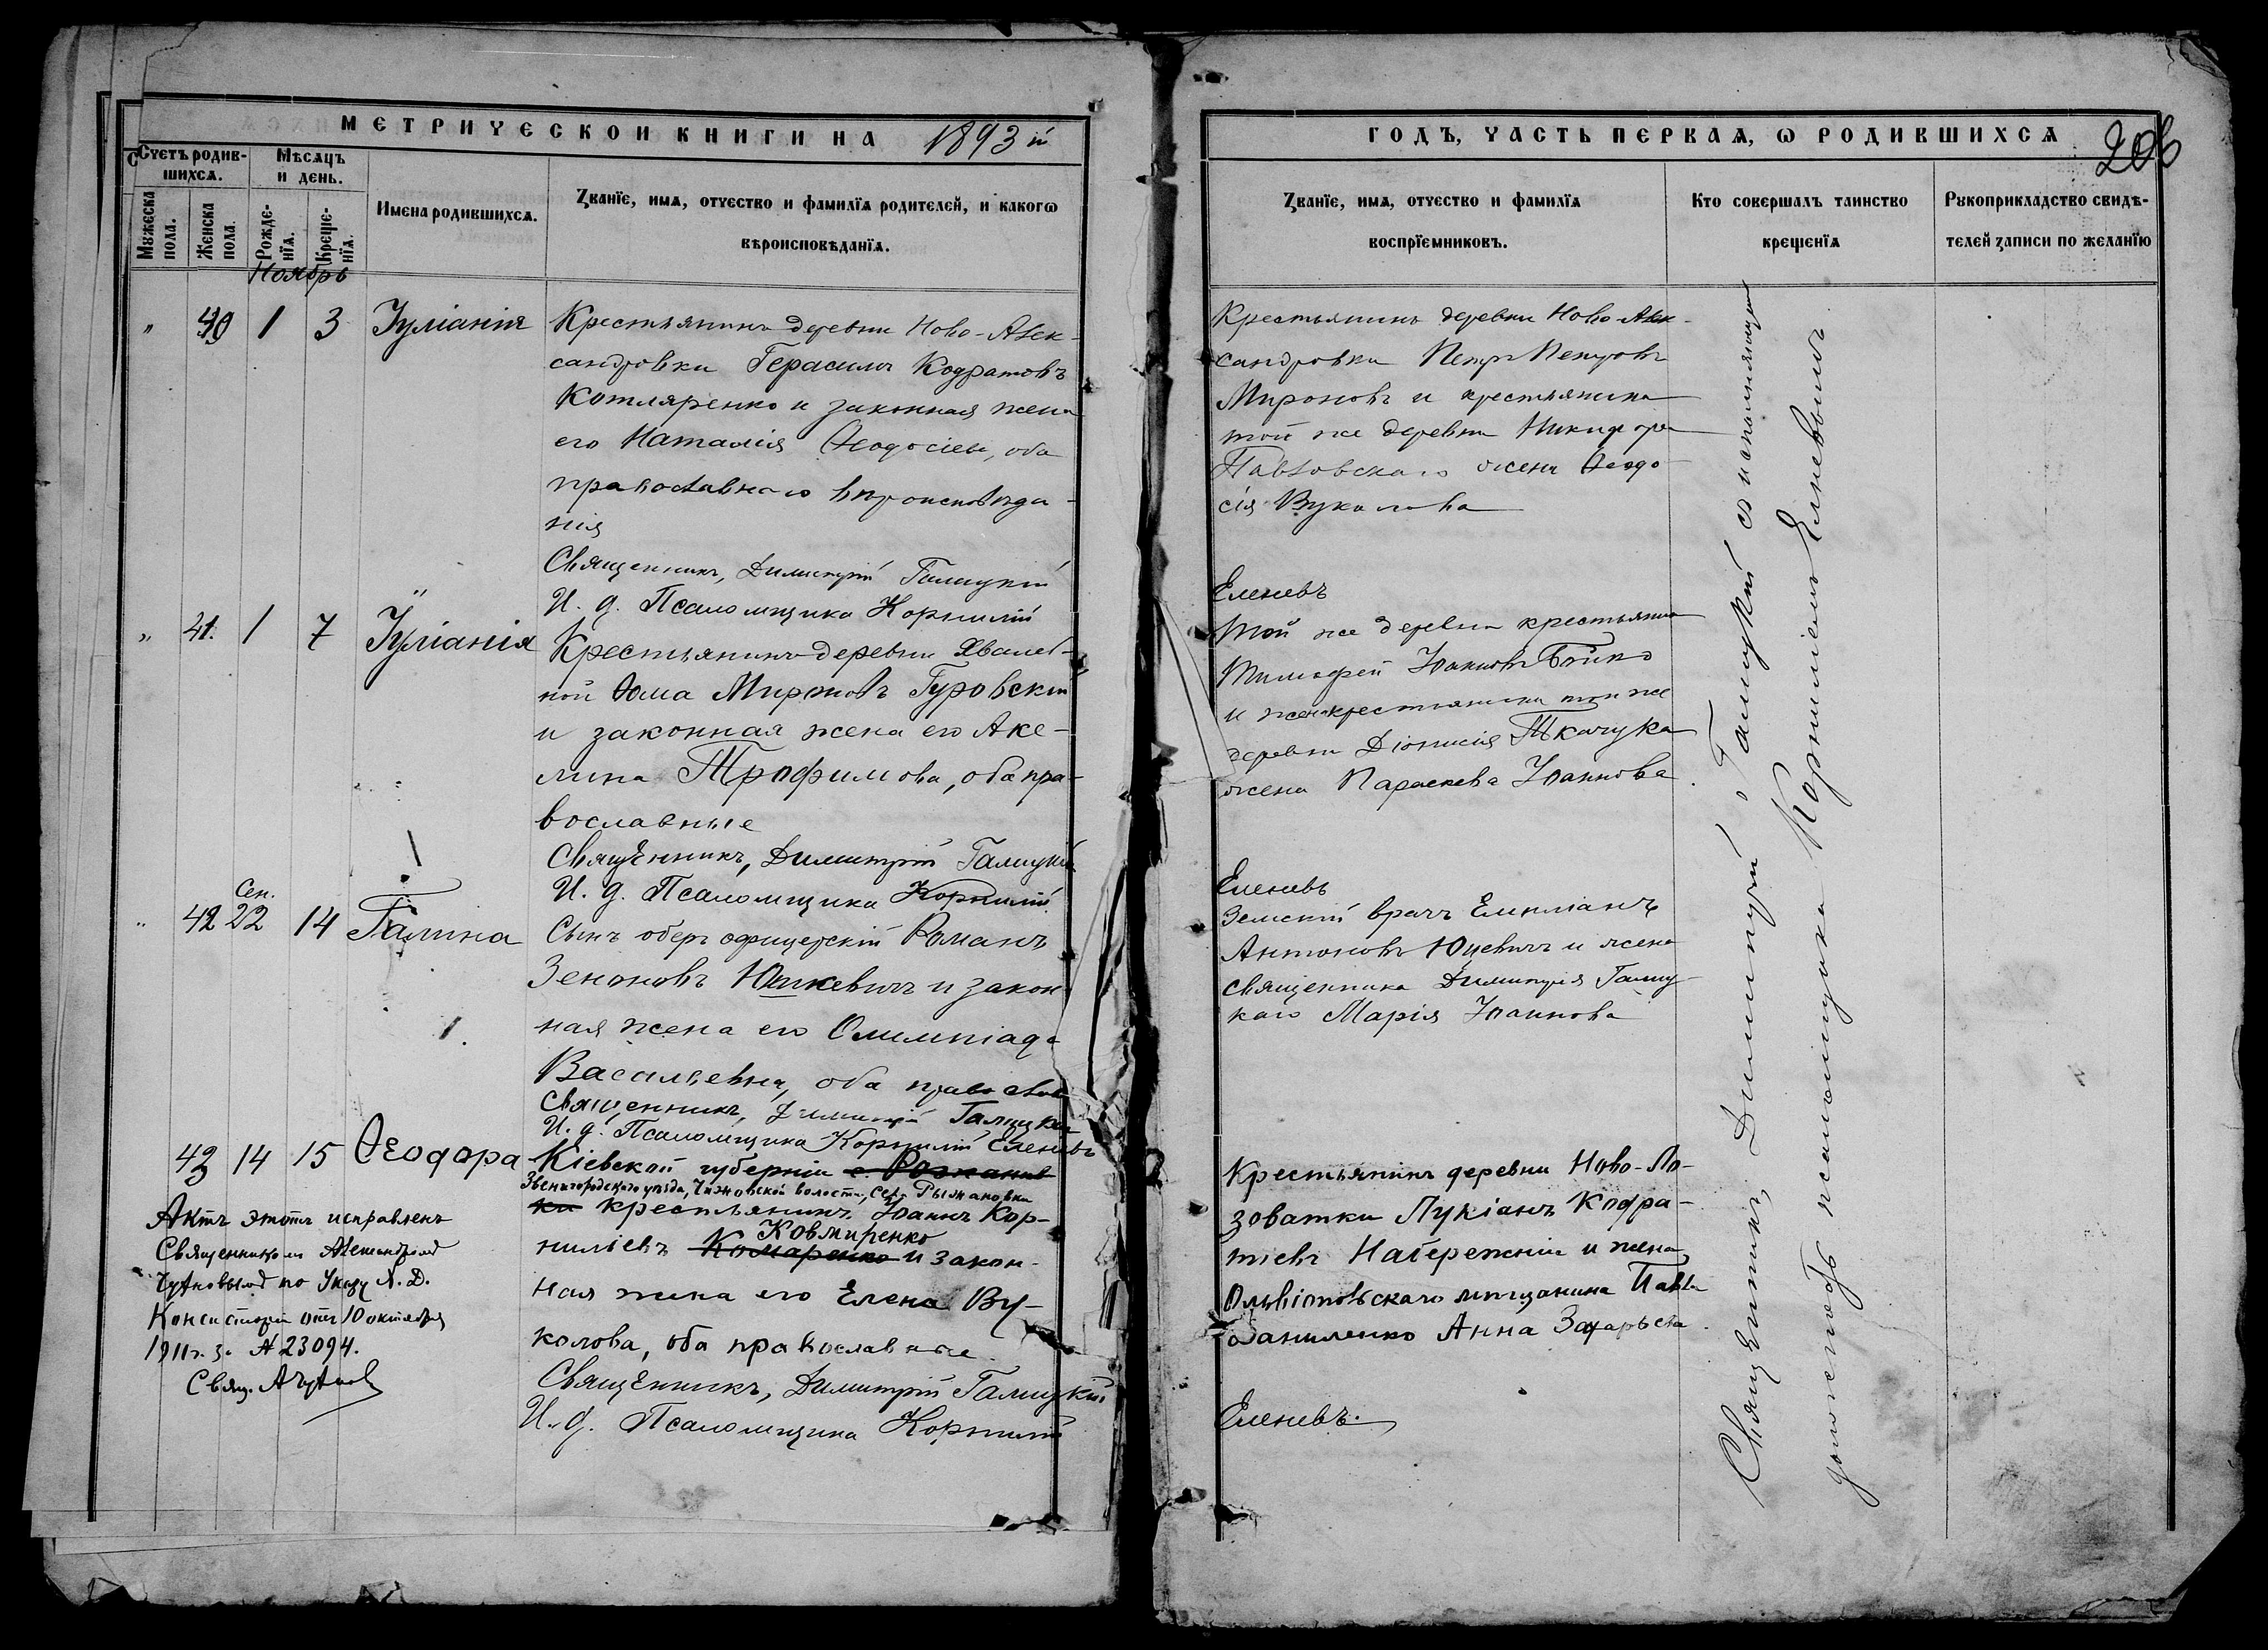 МЕТРИЧЕСКОЙ КНИГИ НА 1893 й
Счетъ родив-
шихся.
Мѣсяцъ
и день.
Мужеска
пола.
Женска
пола.
Рожде-
нїя.
Креще-
нїя.
Имена родившихся.
Званїе, имя, отчество и фамилїя родителей, и какогѡ
вѣроисповѣданїя.
Ноябрь
" 40 1 3 Іуліанія
Крестьянинъ деревни Ново-Алек-
сандровки Герасимъ Кодратовъ
Котляренко и законная жена
его Наталія Ѳеодосіева, оба
православнаго вѣроисповѣда-
нія
Священникъ, Димитрій Галицкій
И. д. Псаломщика Корнилій
" 41. 1 7 Іуліанія
Крестьянинъ деревни Хвалеб-
ной Ѳома Мироновъ Гуровскій
и законная жена его Аке-
лина Трофимова, оба пра-
вославные
Священникъ, Димитрій Галицкій
И. д. Псаломщика Корнилій
Сен.
" 42 22 14 Галина
Сынъ оберъ офицерскій Романъ
Зеноновъ Юшкевичъ и закон-
ная жена его Олимпіада
Васильевна, оба православ
Священникъ, Димитрій Галицкій
И. д. Псаломщика Корнилій Еленевъ
43 14 15 Ѳеодора
Кіевской губерніи с. Рожанов
Звенигородскаго уѣзда, Чижовской волости, села Рыжановки
ки крестьянинъ Іоаннъ Кор-
Ковмиренко
нилiевъ Комаренко и закон-
ная жена его Елена Ву-
колова, оба православные
Священникъ, Димитрій Галицкій
И. д. Псаломщика Корнилій
Актъ этотъ исправленъ
Священникомъ Александромъ
по Указу Х. Д.
Консисторіи отъ 10 октября
1911 г. за № 23094.
Свящ.
ГОДЪ, ЧАСТЬ ПЕРВАЯ, Ѡ РОДИВШИХСЯ
206
Званїе, имя, отчество и фамилїя
воспрїемниковъ.
Кто совершалъ таинство
крещенїя
Рукоприкладство свидѣ-
телей записи по желанїю
Крестьянинъ деревни Ново-Алек-
сандровки Петръ Петровъ
Мироновъ и крестьянина
той же деревни Никифора
Павловскаго жена Ѳеодо-
сія Вуколова
Еленевъ
Той же деревни крестьянинъ
Тимофей Іоанновъ Бойко
и жена крестьянина той же
деревни Діонисія Ткачука
жена Параскева Іоаннова
Еленевъ
Земскій врачъ Емиліанъ
Антоновъ Юцевичъ и жена
священника Димитрія Галиц-
каго Марія Іоаннова
Крестьянинъ деревни Ново-Ло-
зоватки Лукіанъ Кодра-
тіевъ Набережній и жена
Ольвіопольскаго мѣщанина Павла
Даниленко Анна Захарьева
Еленевъ.
Священникъ, Димитрій Галицкій съ исполняющимъ
должность псаломщика Корниліемъ Еленевымъ